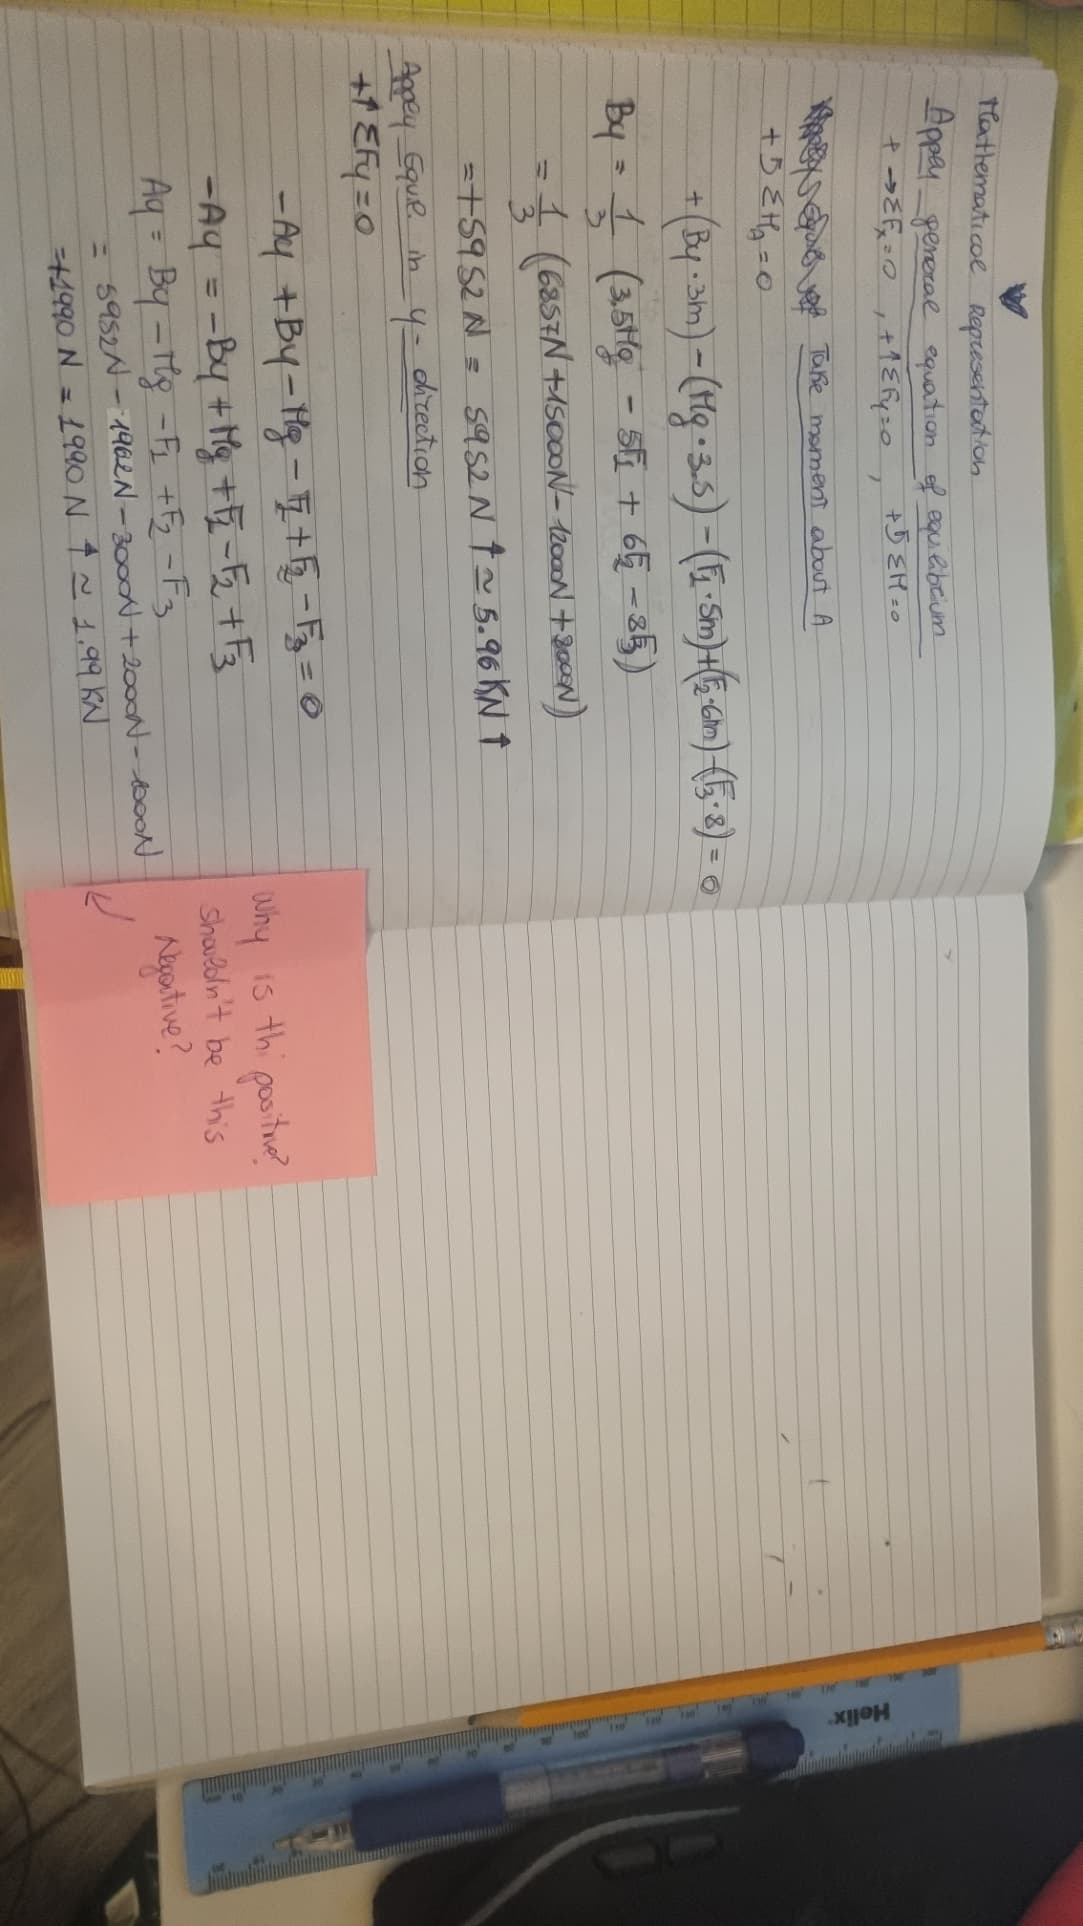 Mathematical Representation
Apply general equation of equilibrium
+ → ΣFx=0 , +↑ΣFy=0 , +↺ΣM=0
Take moment about A
+↺ΣMA=0
+(By·3m)-(Mg·3.5)-(F1·5m)+(F2·6m)-(F3·8)=0
By = 1/3 (3.5Mg - 5F1 + 6F2 - 8F3)
= 1/3 (6857N+15000N-12000N+8000N)
= +5952N = 5952N ↑ ≃ 5.96KN ↑
Appey Eque in y- direction
+↑ΣFy=0
-Ay + By - Mg - F1 + F2 - F3 = 0
-Ay = -By + Mg + F1 - F2 + F3
Ay = By - Mg - F1 + F2 - F3
= 5952N - 1962N - 3000N + 2000N - 1000N
= +1990N = 1990N ↑ ≃ 1.99KN
Why is thi positive?
Shouldn't be this
Negative?
Helix